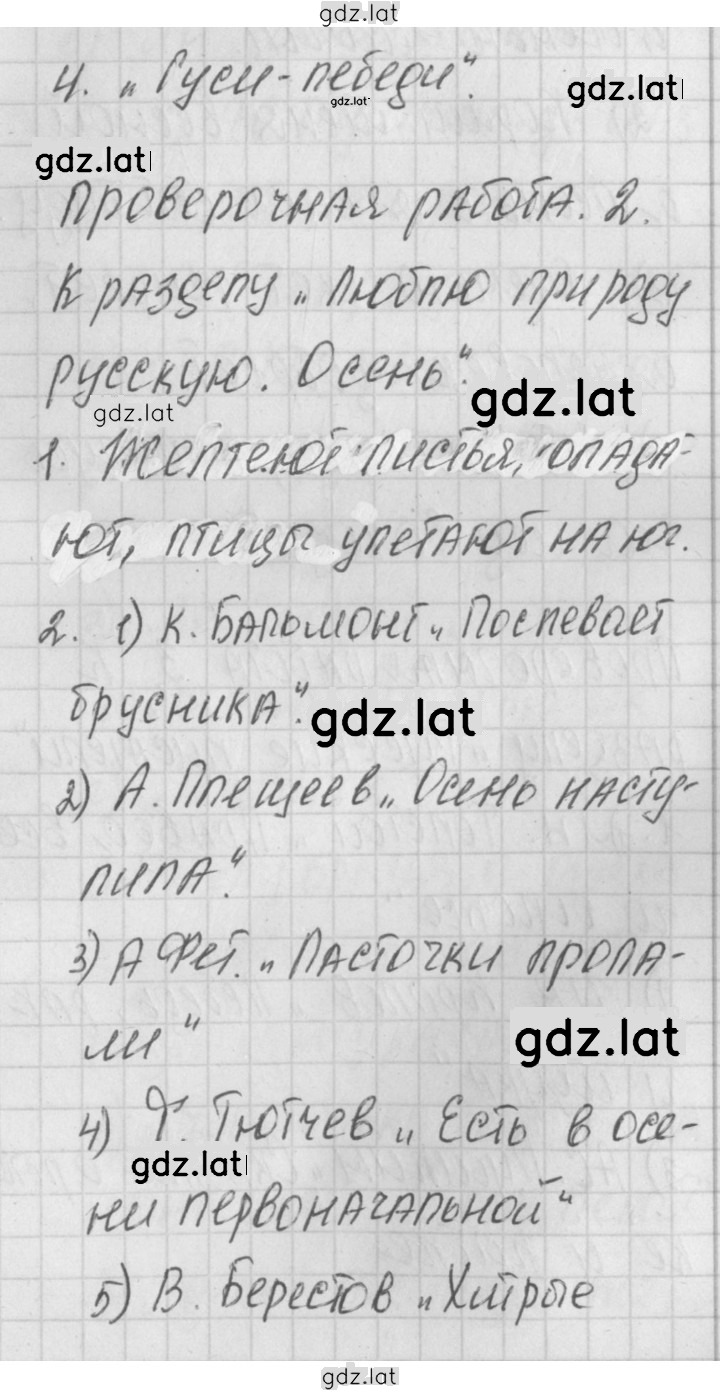 gdz.lat
4. „Гуси-лебеди".
gdz.lat
gdz.lat
gdz.lat
Проверочная работа. 2.
К разделу „Люблю природу
русскую. Осень".
gdz.lat
gdz.lat
1. Желтеют листья, опада-
ют, птицы улетают на юг.
2. 1) К. Бальмонт „Поспевает
брусника".
gdz.lat
2) А. Плещеев „Осень насту-
пила".
3) А Фет. „Ласточки пропа-
ли"
gdz.lat
4) Ф. Тютчев „Есть в осе-
gdz.lat
ни первоначальной"
5) В. Берестов „Хитрые
gdz.lat